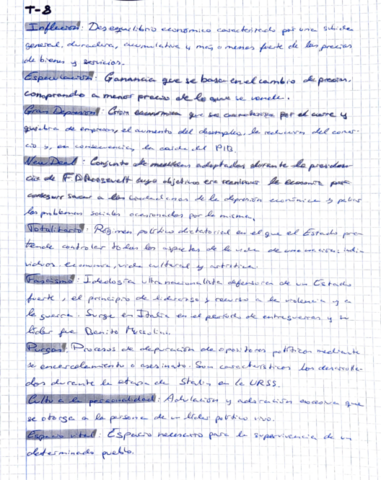 T-8
Inflación: Desequilibrio económico caracterizado por una subida
general, duradera, acumulativa y más o menos fuerte de los precios
de bienes y servicios.
Especulación: Ganancia que se basa en el cambio de precios,
comprando a menor precio de lo que se vende.
Gran Depresión: Crisis económica que se caracteriza por el cierre y
quiebra de empresas, el aumento del desempleo, la reducción del comer
cio y, en consecuencia, la caída del PIB
New Deal: Conjunto de medidas adoptadas durante la presiden
cia de F.D.Roosevelt cuyo objetivo era reactivar la economía para
conseguir sacar a los estadounidenses de la depresión económica y paliar
los problemas sociales ocasionados por la misma.
Totalitario: Régimen político dictatorial en el que el Estado pre
tende controlar todos los aspectos de la vida de una nación; indi
viduos, economía, vida cultural y artística.
Fascismo: Ideología ultranacionalista defensora de un Estado
fuerte, el principio de liderazgo y recurso a la violencia y a
la guerra. Surge en Italia en el período de entreguerras y su
líder fue Benito Mussolini.
Purgas: Procesos de depuración de opositores políticos mediante
su encarcelamiento o asesinato. Son característicos los desarrolla
dos durante la etapa de Stalin en la URSS.
Culto a la personalidad: Adulación y adoración excesiva que
se otorga a la persona de un líder político vivo.
Espacio vital: Espacio necesario para la supervivencia de un
determinado pueblo.